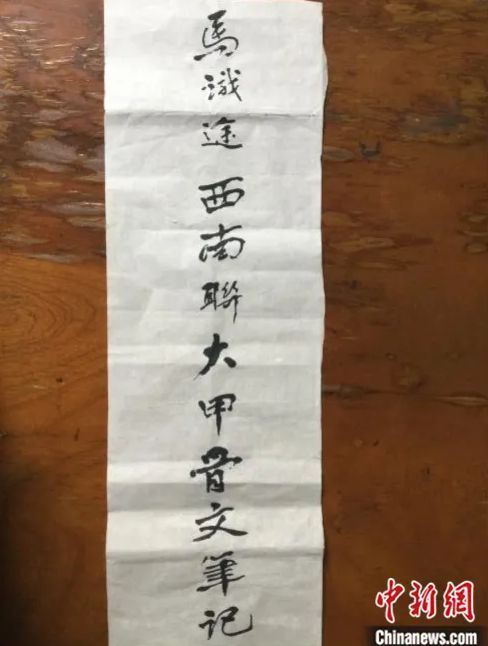 馬识途西南聯大甲骨文笔记
中新网
Chinanews.com